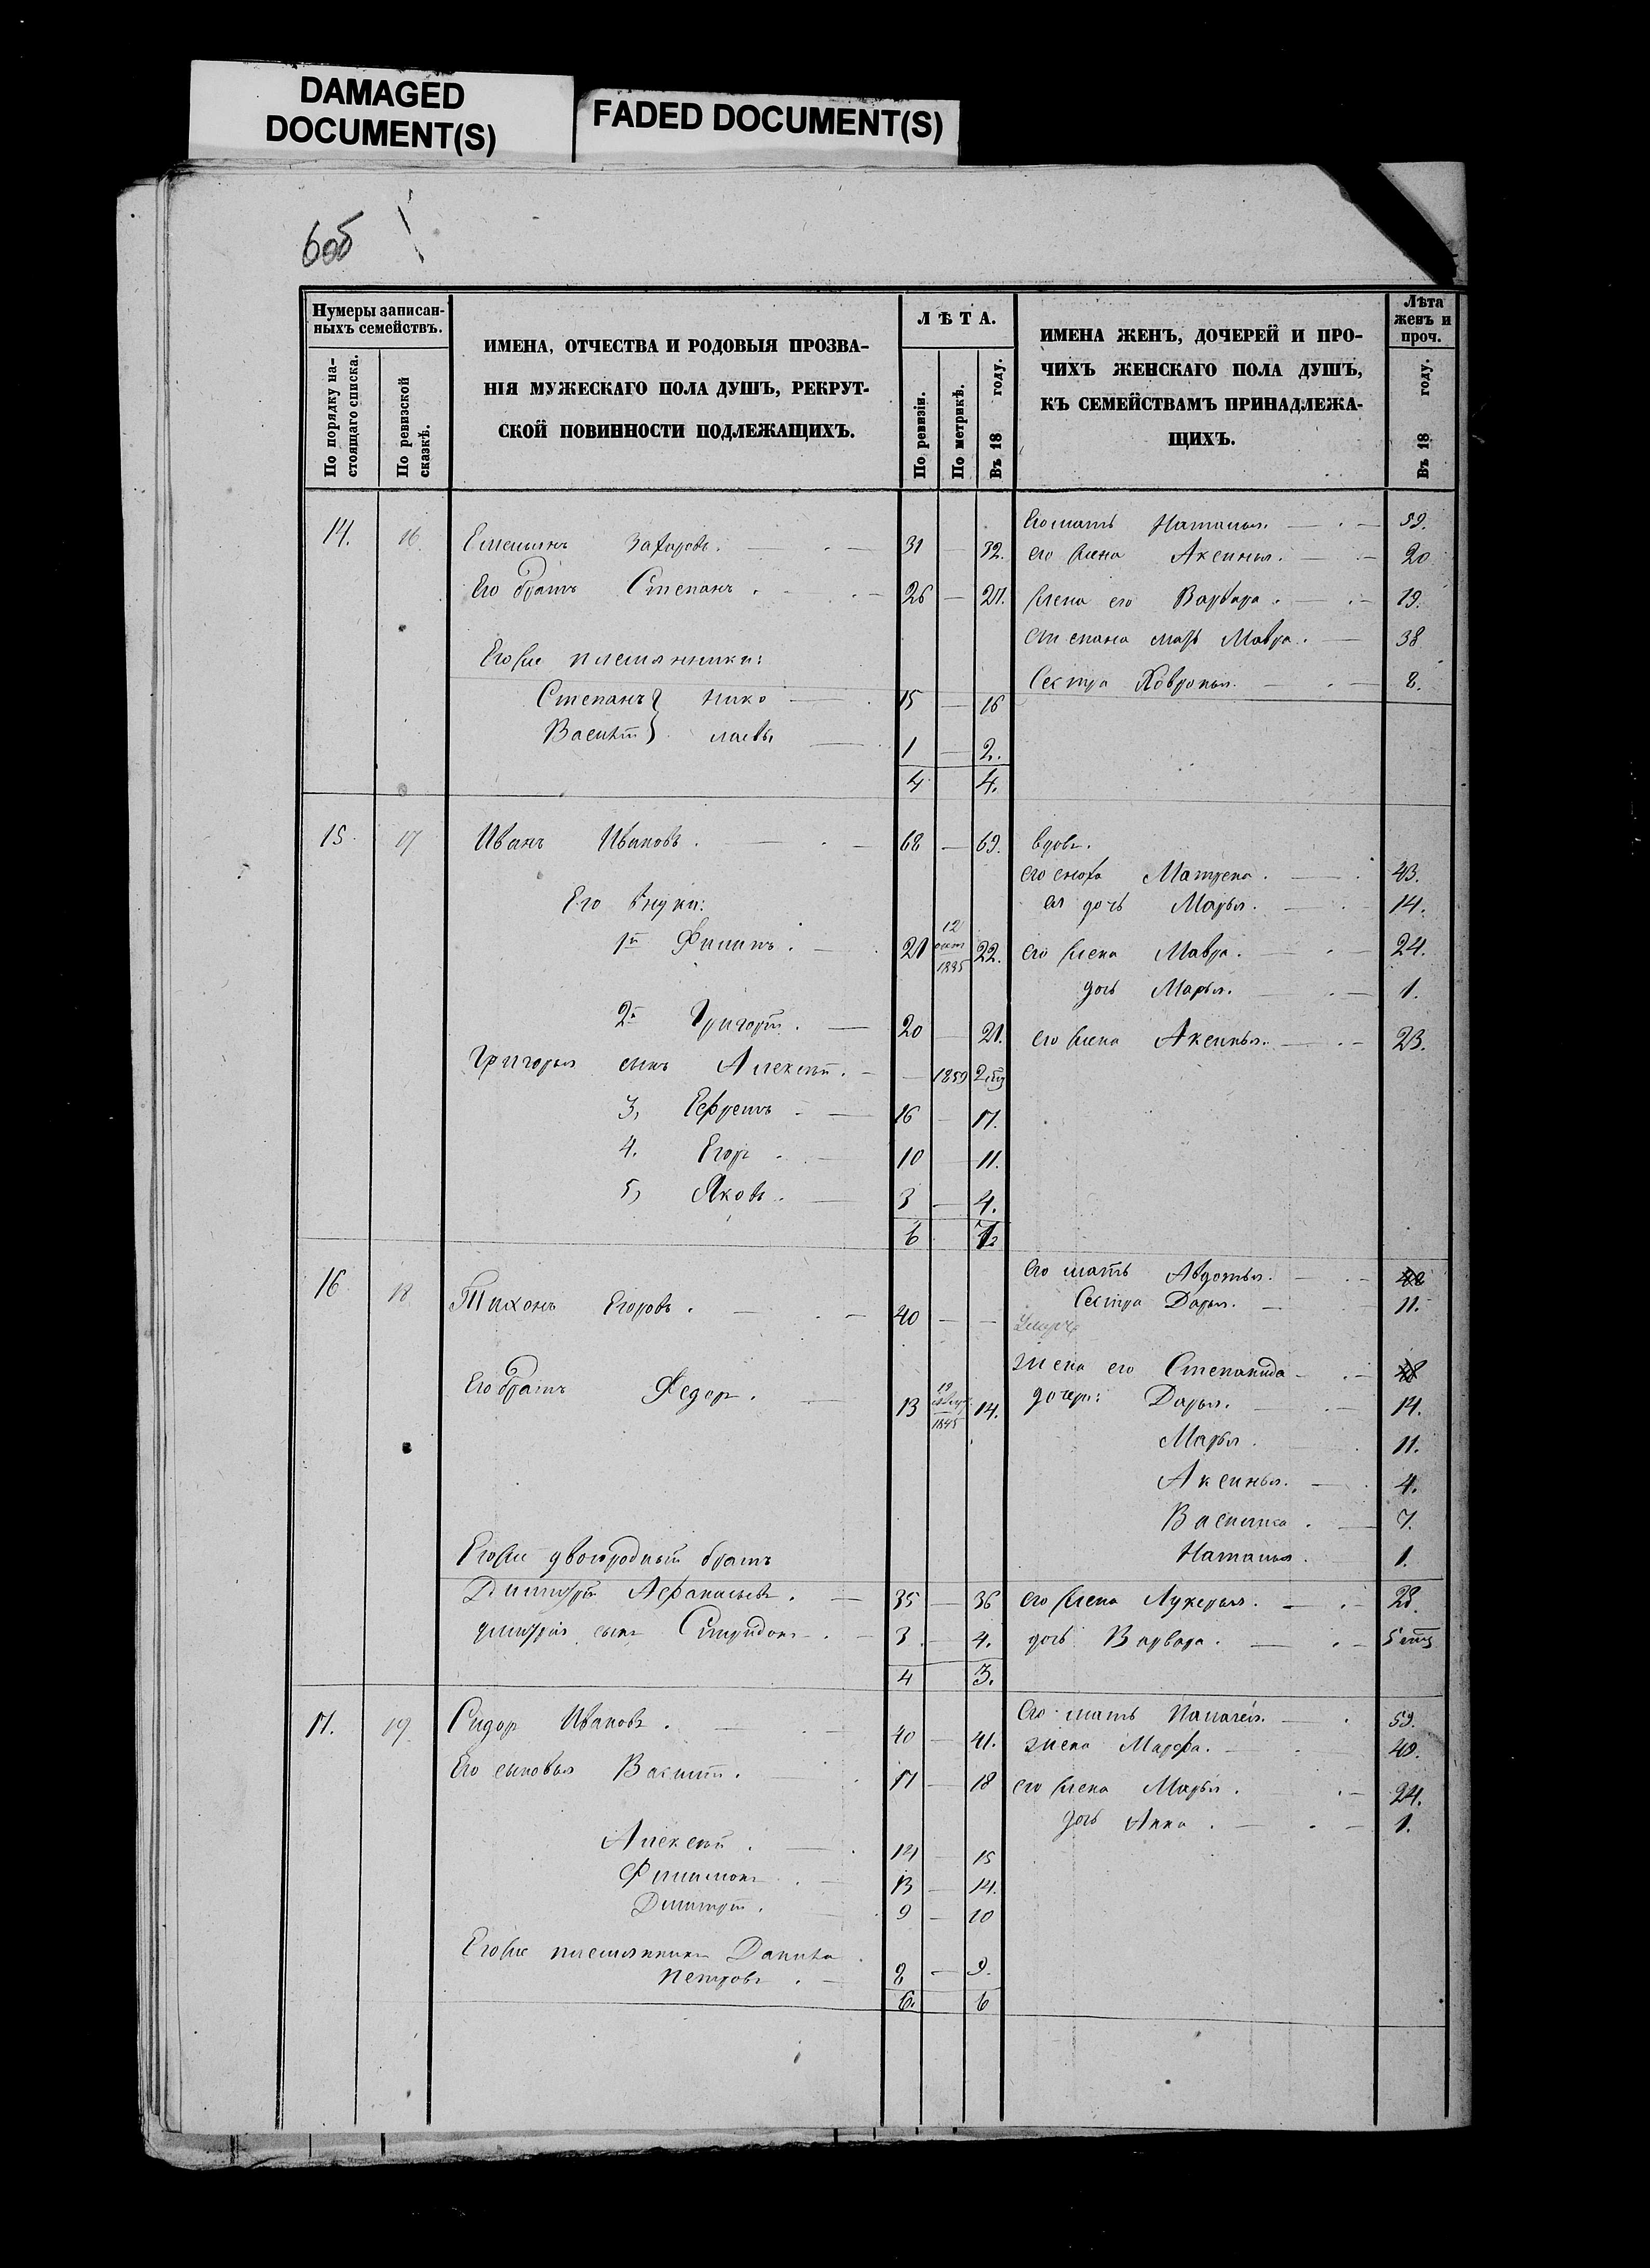 DAMAGED
DOCUMENT(S)
FADED DOCUMENT(S)
6об
Нумеры записан-
ныхъ семействъ.
По порядку на-
стоящаго списка.
По ревизской
сказкѣ.
ИМЕНА, ОТЧЕСТВА И РОДОВЫЯ ПРОЗВА-
НІЯ МУЖЕСКАГО ПОЛА ДУШЪ, РЕКРУТ-
СКОЙ ПОВИННОСТИ ПОДЛЕЖАЩИХЪ.
ЛѢТА.
По ревизіи.
По метрикѣ.
Въ 18 году.
ИМЕНА ЖЕНЪ, ДОЧЕРЕЙ И ПРО-
ЧИХЪ ЖЕНСКАГО ПОЛА ДУШЪ,
КЪ СЕМЕЙСТВАМЪ ПРИНАДЛЕЖА-
ЩИХЪ.
Лѣта
женъ и
проч.
Въ 18 году.
Его мать Наталья. — 59.
14. 16. Емельянъ Захаровъ. — 31 — 32. его жена Аксинья. — 20
Его братъ Степанъ. — 26 — 27. жена его Варвара. — 19.
Степана мать Мавра. — 38
Егоже племянники:
Сестра Ховронья. — 8.
Степанъ } Нико — 15 — 16
Василій } лаевы — 1 — 2.
4 4.
15. 17 Иванъ Ивановъ. — 68 — 69. вдовъ.
его сноха Матрена. — 43.
Его внуки: ея дочь Марья. — 14.
1й Филипъ. — 21 12 окт 1835 22. его жена Мавра. — 24.
дочь Марья. — 1.
2й Григорій. — 20 — 21. его жена Аксинья. — 23.
Григорья сынъ Алексѣй. — — 1859
3, Ефремъ — 16 — 17.
4. Егоръ — 10 — 11.
5, Яковъ. — 3 — 4.
6 7.
Его мать Авдотья. —
16 18 Тихонъ Егоровъ. — 40 — — Сестра Дарья. — 11.
Умеръ
жена его Степанида —
Его братъ Федоръ. — 13 19 1845 14. дочери: Дарья. — 14.
Марья. 11.
Аксинья. — 4.
Василиса. — 7.
Егоже двоюродный братъ Наталья. 1.
Дмитрій Афанасьевъ. — 35 — 36 его жена Лукерья. — 28.
Дмитрія сынъ Спиридонъ — 3 — 4. дочь Варвара. —
4 3.
17. 19 Сидоръ Ивановъ. — 40 — 41. Его мать Палагея. — 59.
жена Марфа. — 40.
Его сыновья Василій. — 17 — 18 его жена Марья. — 24.
дочь Анна. — 1.
Алексѣй. — 14 — 15
Филимонъ. — 13 — 14.
Дмитрій. 9 — 10
Егоже племянникъ Данила
Петровъ. — 8 — 9.
6. 6